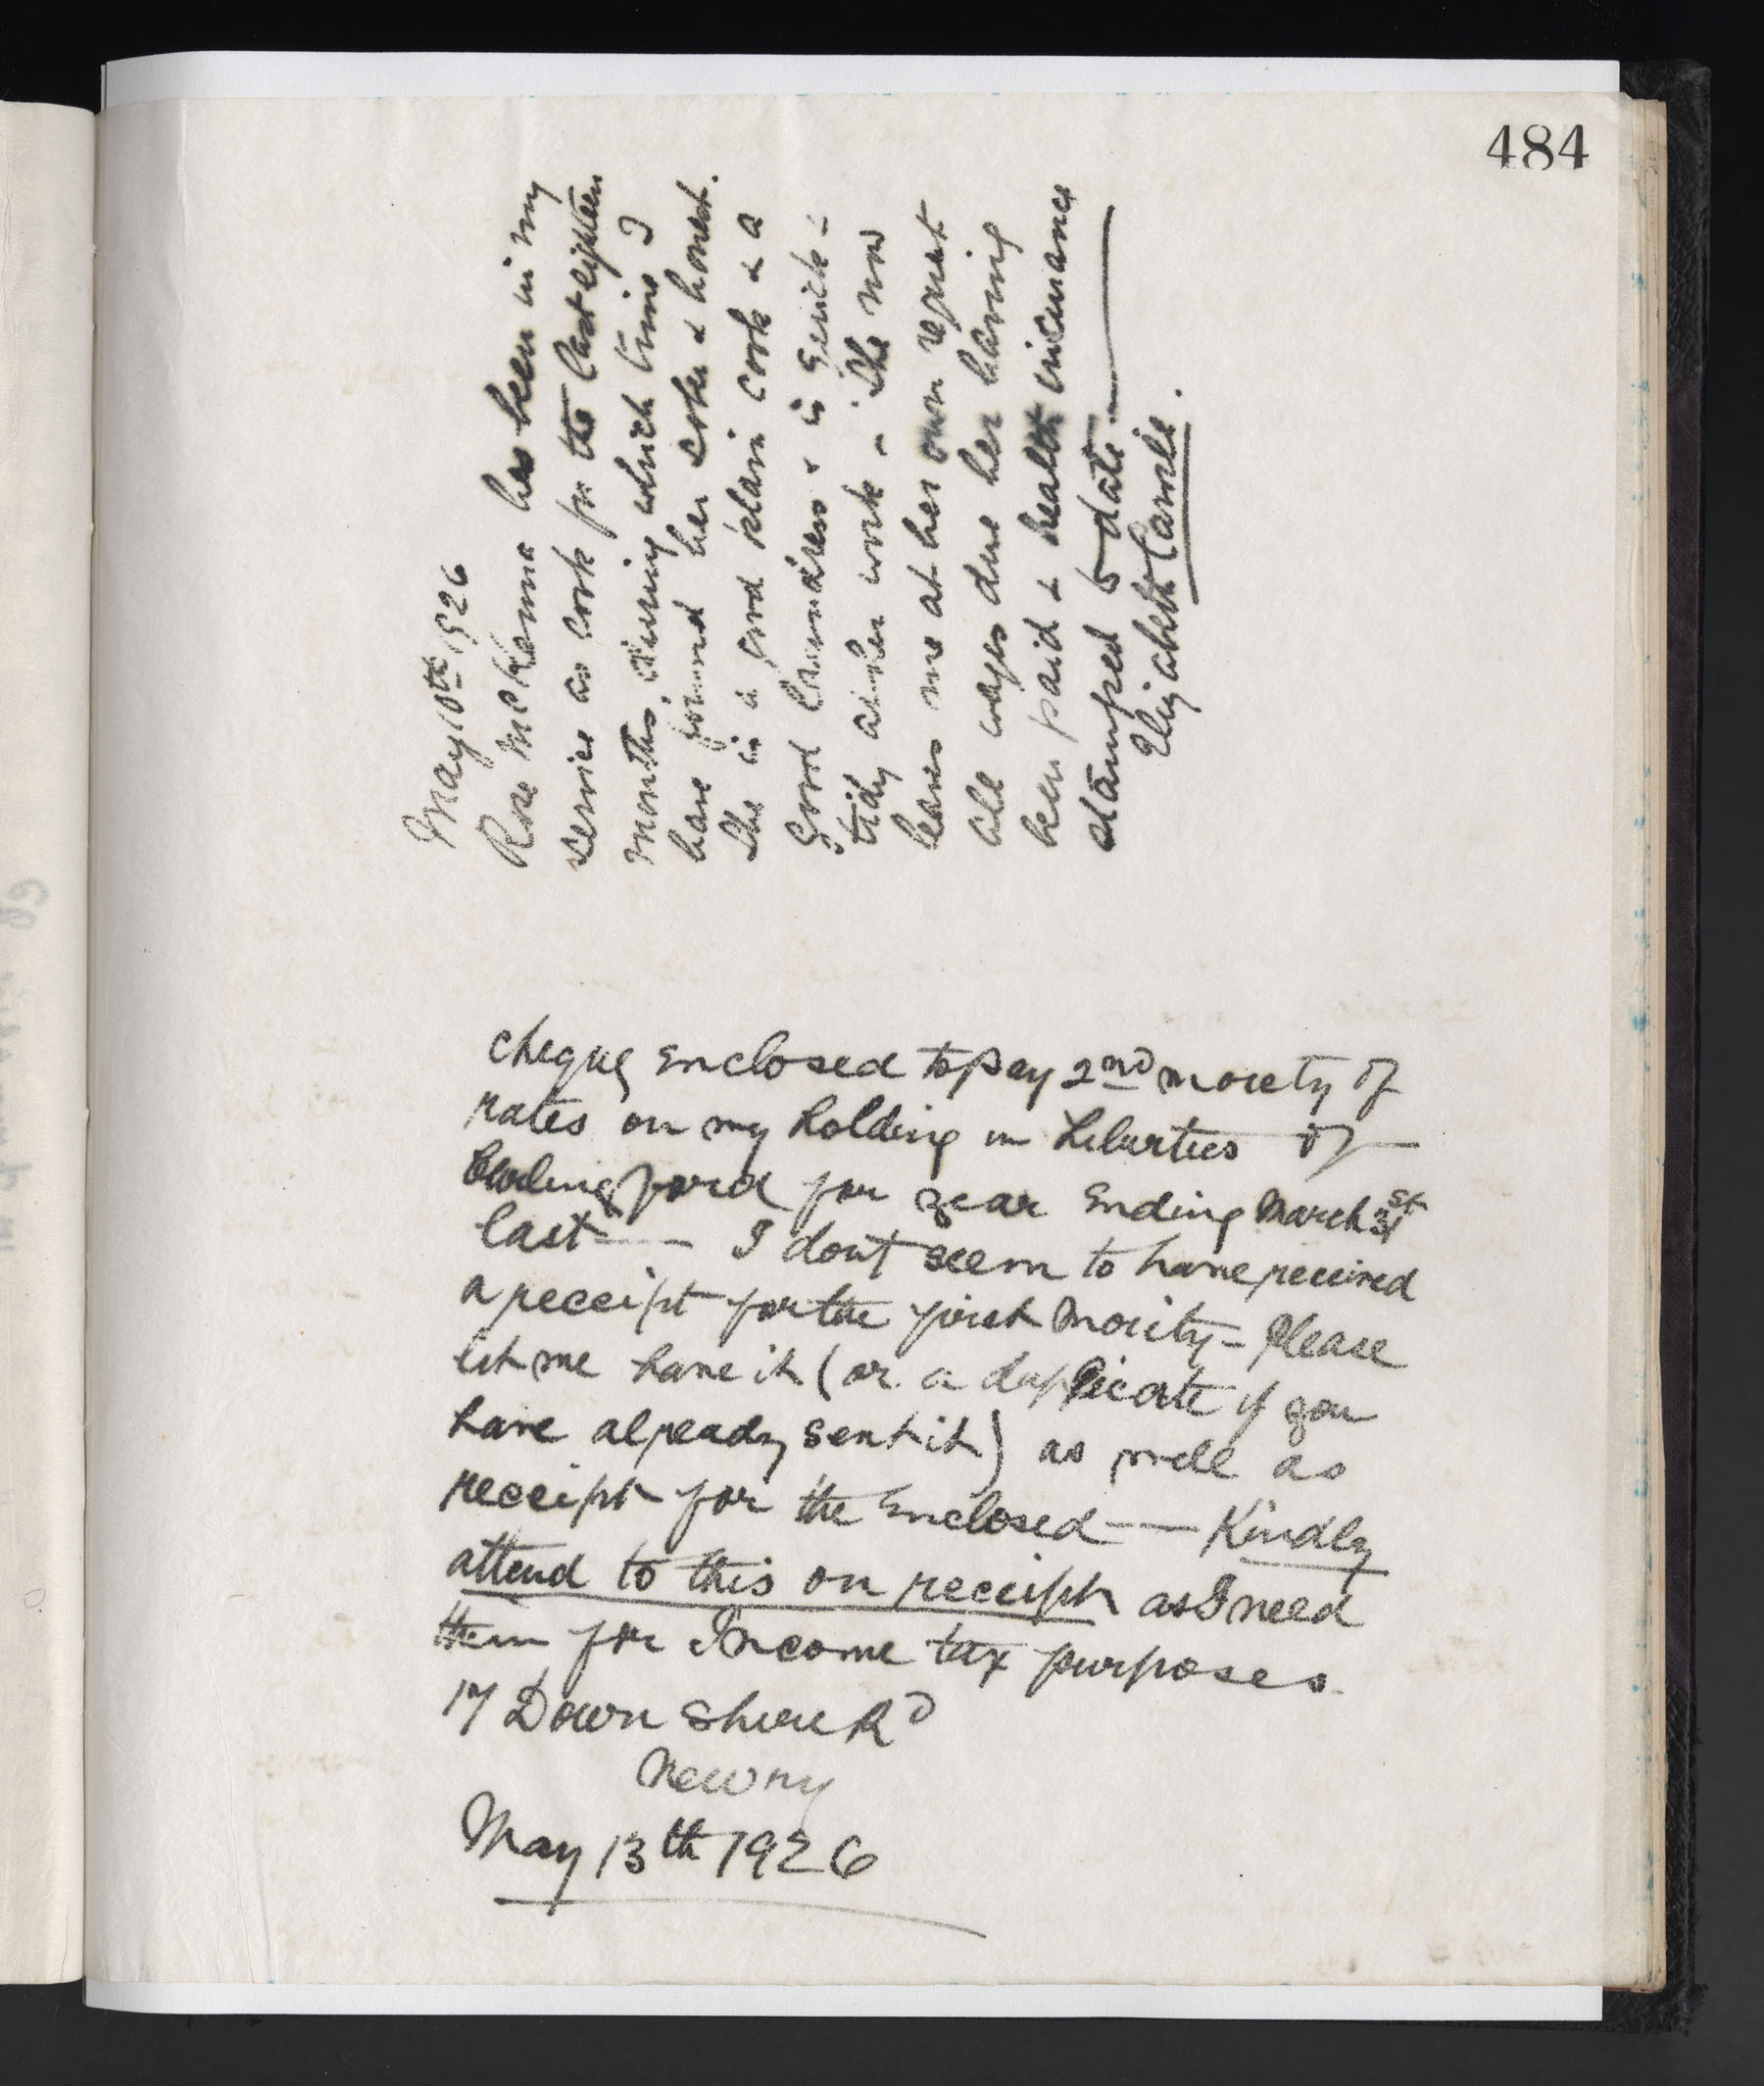 484
May 10th 1926
Rose McKenna has been in my
service as cook for the last eighteen
months, during which time I
have found her sober & honest.
She is a good plain cook & a
good laundress & is quick &
tidy at her work - She now
leaves me at her own request
all wages due her having
been paid & health insurance
stamped to date.
Elizabeth Carvill.
Cheque enclosed to pay 2nd moiety of
rates on my holding in Liberties of
Carlingford for year Ending March 31st
last — I dont seem to have received
a receipt for the first Moiety - Please
let me have it (or a duplicate if you
have already sent it) as well as
receipt for the Enclosed — Kindly
attend to this on receipt as I need
them for Income tax purposes.
17 Downshire Rd
Newry
May 13th 1926